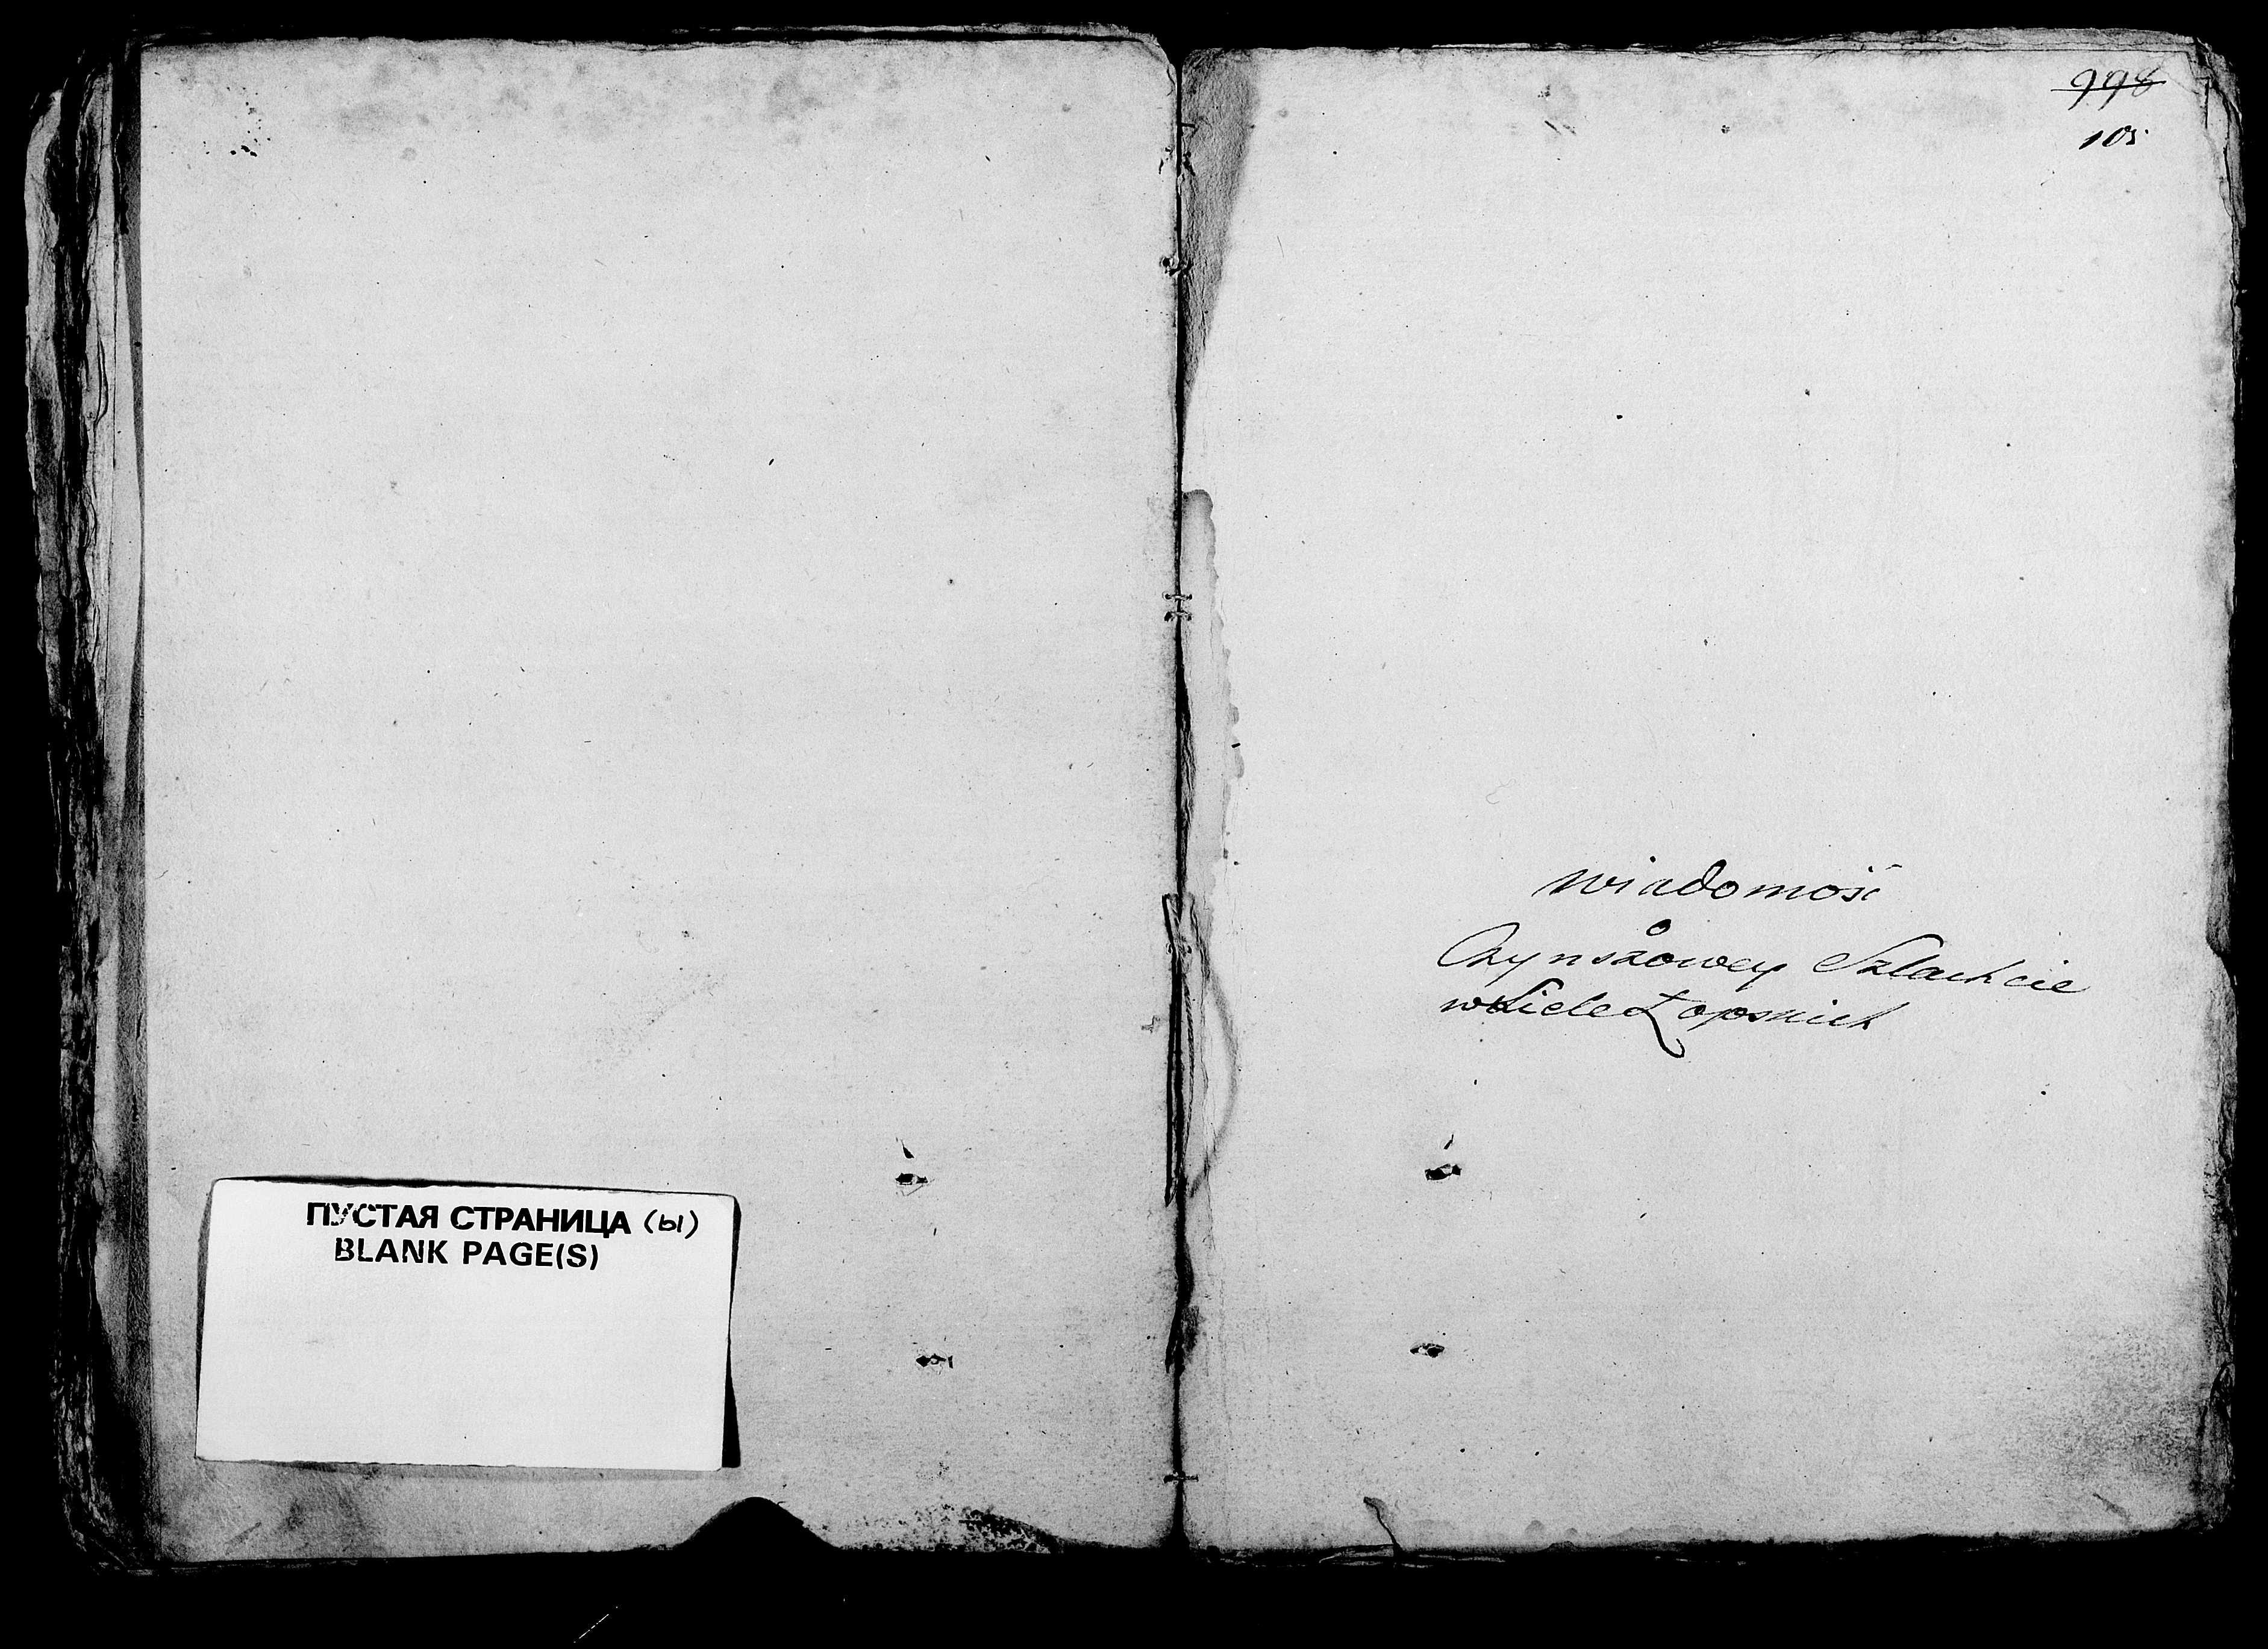 ПУСТАЯ СТРАНИЦА (ы)
BLANK PAGE(S)
998
105
Wiadomość
o
Czynszowey Szlachcie
Łopskich